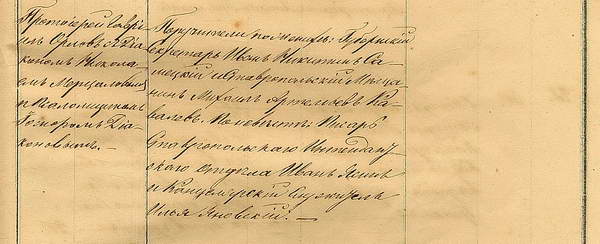 Протоіерей Гаврі-
илъ Орловъ съ Діа-
кономъ Никола-
емъ
и Псаломщикомъ
Діа-
коновымъ. —
Поручители по женихѣ: Губернскій
Секретарь Иванъ Никитинъ Са-
вицкій и Ставропольскій Мѣща-
нинъ Михаилъ Артемьевъ Ко-
валевъ. По невѣстѣ: Писарь
Ставропольскаго Интендант-
скаго отдѣла Иванъ
и Канцелярскій Служитель
Илья Яновскій. —